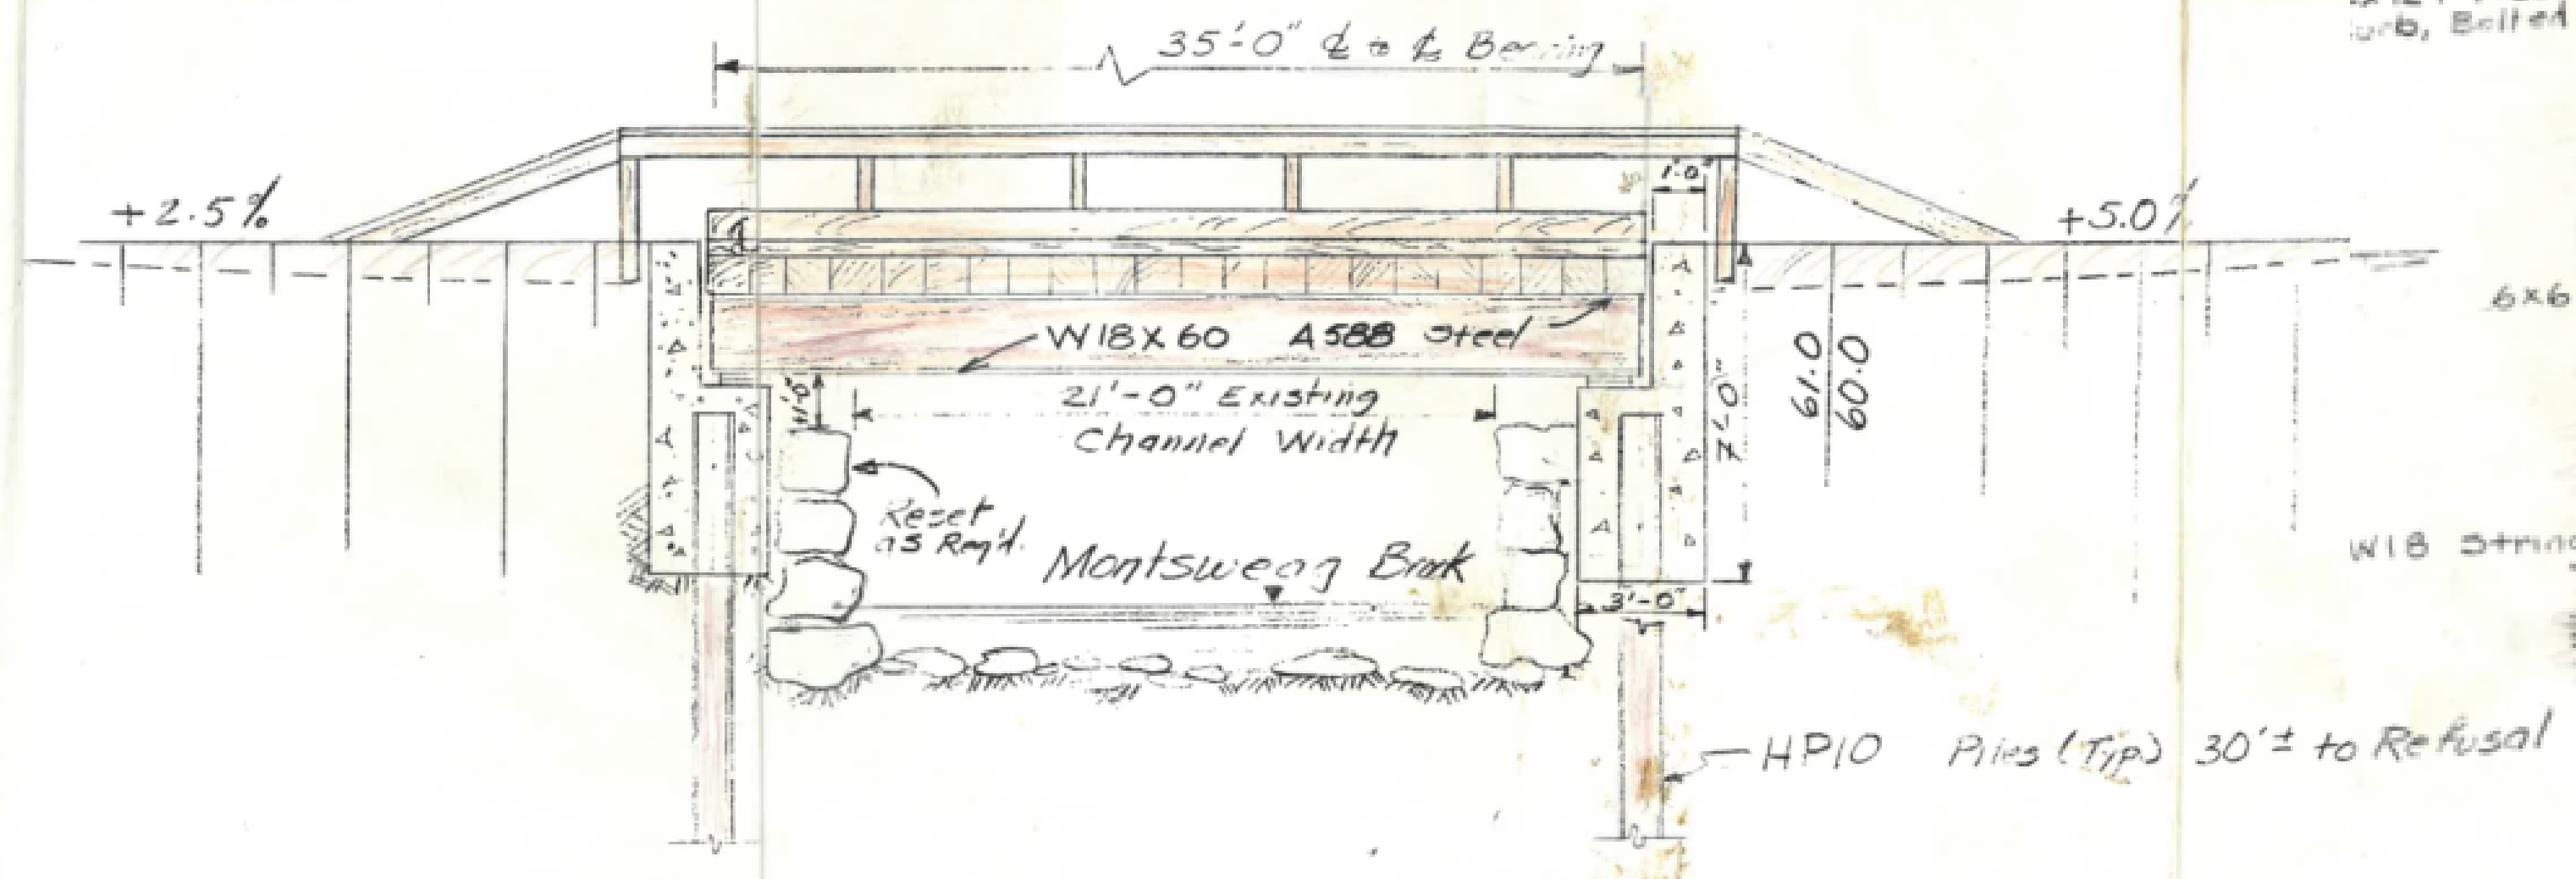 urb, Bolted
35'-0" ℄ to ℄ Bearing
1'-0"
+2.5%
+5.0%
6x6
W18X60 A588 Steel
1'-0"
21'-0" Existing
Channel Width
7'-0"
61.0
60.0
Reset
as Req'd.
Montsweag Brook
W18 String
3'-0"
HP10 Piles (Typ.) 30'± to Refusal